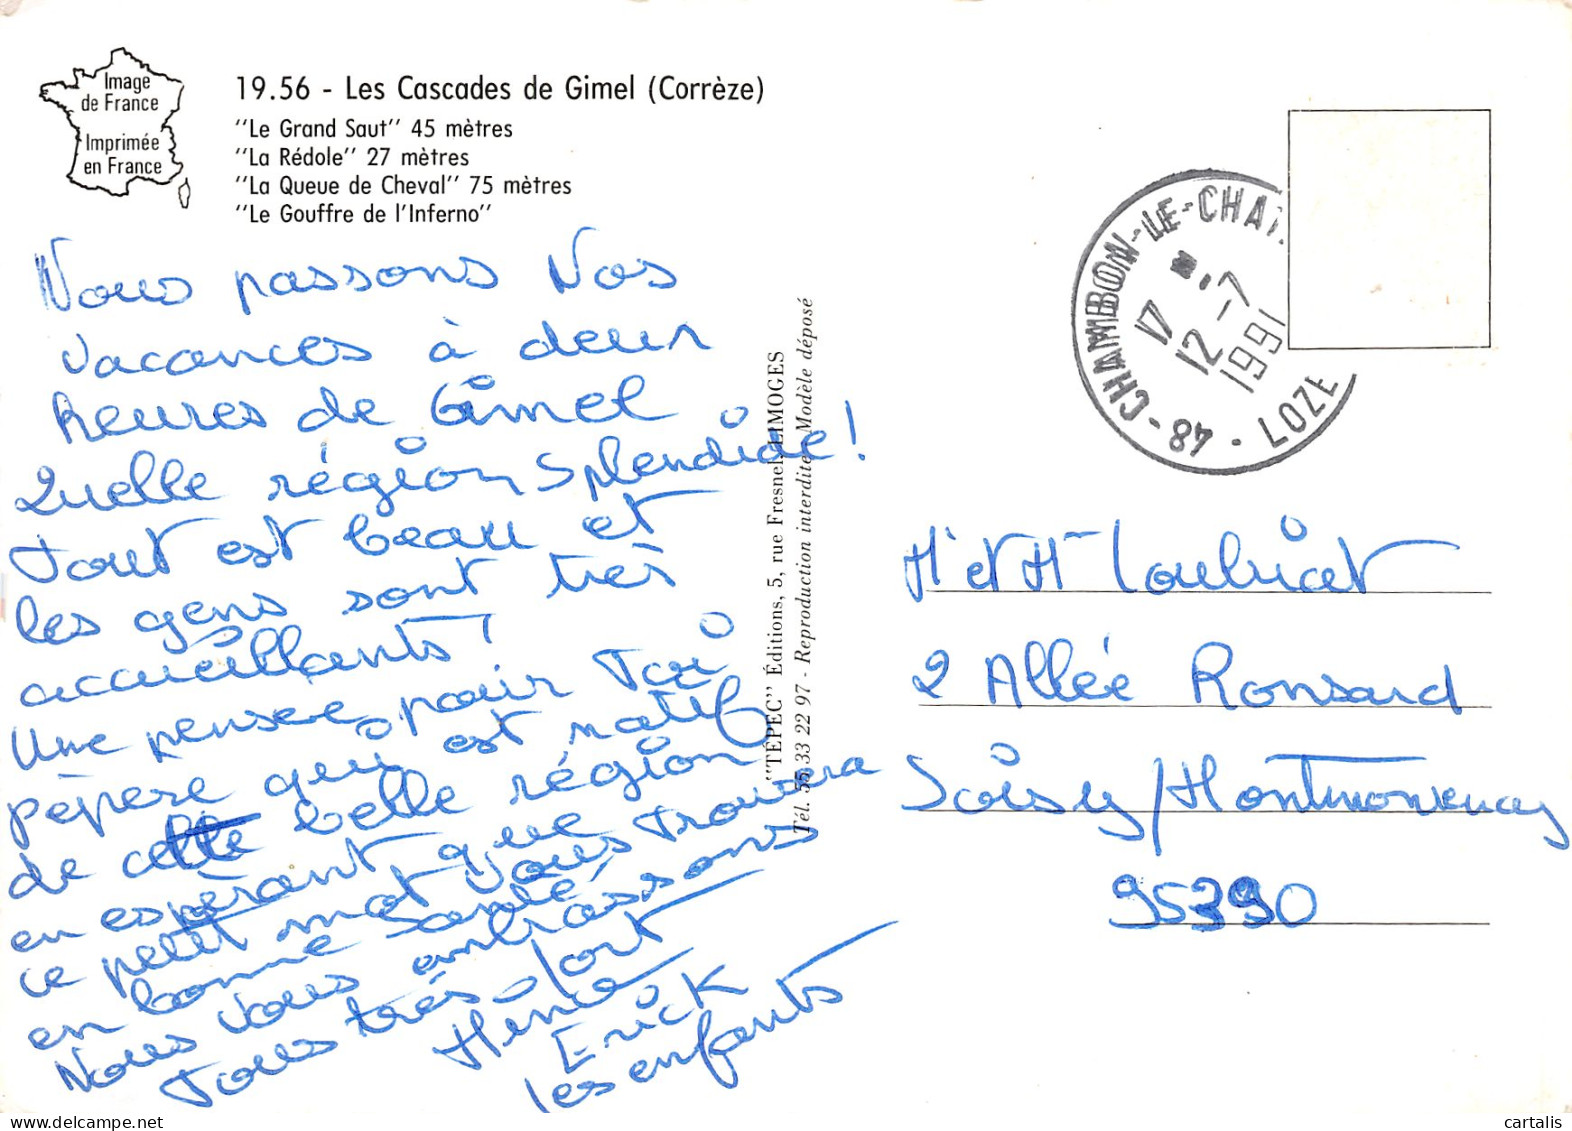 Image
de France
Imprimée
en France
19.56 - Les Cascades de Gimel (Corrèze)
"Le Grand Saut" 45 mètres
"La Rédole" 27 mètres
"La Queue de Cheval" 75 mètres
"Le Gouffre de l'Inferno"
Nous passons Nos
vacances à deux
heures de Gimel
Quelle région splendide!
Tout est beau et
les gens sont très
accueillants!
Une pensée pour Toi
pépère qui est natif
de cette belle région
en espérant que
ce petit mot vous trouvera
en bonne santé,
Nous vous embrassons
Tous très fort
Erick
les enfants
"TÉPEC" Éditions, 5, rue Fresnel, LIMOGES
Tél. 55 33 22 97 - Reproduction interdite. Modèle déposé
48 - CHAMBON-LE-CHAT
17 H.
12 -7
1991
LOZE
Mr et Mme Loubriat
2 Allée Ronsard
Soisy/Montmorency
95390
cartalis